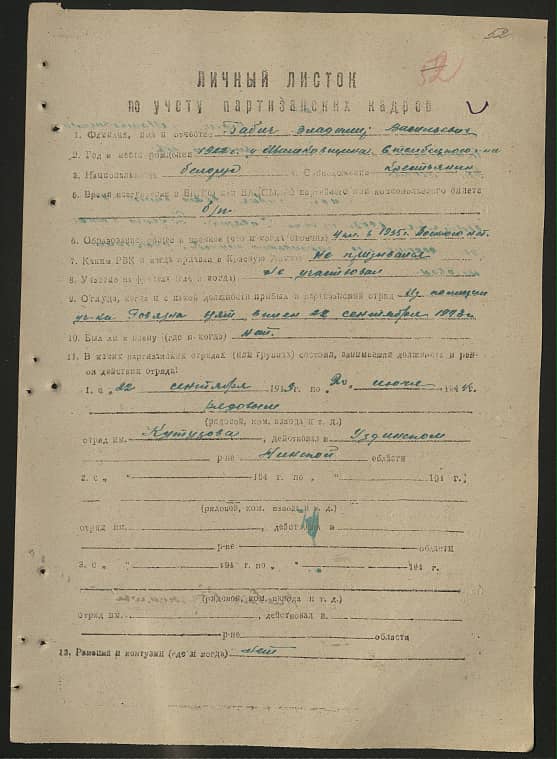 52
52
ЛИЧНЫЙ ЛИСТОК
по учету партизанских кадров
1. Фамилия, имя и отчество Габич Владимир Васильевич
2. Год и место рождения 1922 г. д.
3. Национальность белорус 4. Соц. крестьянин
5. Время вступления в и партийного или комсомольского билета
б/п.
6. Образование общее и военное (что и когда окончил) 4 кл. в 1935 г. Военного нет.
7. Каким РВК и когда призван в Красную Армию Не призывался
8. Участие на фронте (где и когда) Не участвовал
9. Откуда, когда и с какой должности прибыл в партизанский отряд Из полиции
22 сентября 1943 г.
10. Был ли в плену (где и когда) нет.
11. В каких партизанских отрядах (или группах) состоял, занимавшей должности и рай-
он действия отряда:
1. с „22 сентября 1943 г. по июле 1944 г.
рядовым
(рядовой, ком. взвода и т. д.)
отряд им. Кутузова, действовал в Узденском
р-не Минской области
2. с „ “ 194 г. по „ “ 194 г.
(рядовой, ком. взвода и т. д.)
отряд им. , действовал в
р-не области
3. с „ “ 194 г. по „ “ 194 г.
(рядовой, ком. взвода и т. д.)
отряд им. , действовал в
р-не области
12. Ранения и контузии (где и когда) нет